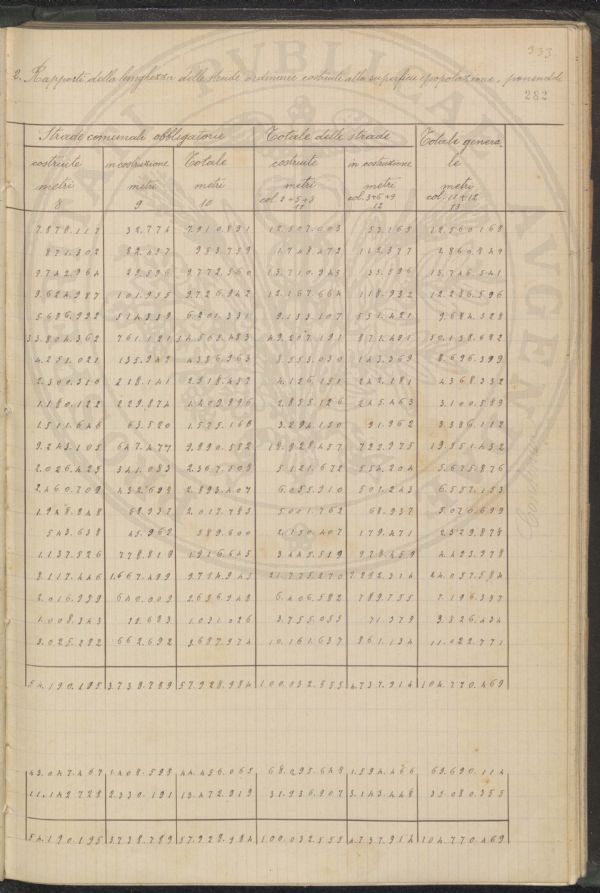 333
2. Rapporti della lunghezza delle strade ordinarie costruite alla superficie e popolazione, ponendole
282
Strade comunali obbligatorie Totale delle strade Totale genera
le
costruite in costruzione Totale costruite in costruzione
metri metri metri metri metri metri
8 9 10 col. 2+5+8 col. 3+6+9 col. 11+12
11 12 13
7.878.117 32.774 7.910.891 12.507.003 53.165 12.560.168
871.302 82.457 953.759 1.748.472 112.377 1.860.849
9.742.964 29.596 9.772.560 13.710.945 35.596 13.746.541
9.624.987 101.955 9.726.942 12.167.664 118.932 12.286.596
5.686.992 514.339 6.201.331 9.133.107 551.421 9.684.528
33.804.362 761.121 34.565.483 49.267.191 871.491 50.138.682
4.251.021 135.942 4.386.963 8.553.030 143.369 8.696.399
2.300.310 218.141 2.518.451 4.126.151 242.181 4.368.332
1.180.122 229.874 1.409.996 2.855.126 245.463 3.100.589
1.511.646 63.520 1.575.166 3.294.150 91.962 3.386.112
9.243.105 647.477 9.890.582 18.828.457 722.975 19.551.432
2.026.425 341.083 2.367.508 5.121.672 554.204 5.675.876
2.460.709 432.698 2.893.407 6.055.910 501.243 6.557.153
1.948.848 68.937 2.017.785 5.001.762 68.937 5.070.699
543.638 45.962 589.600 2.150.407 179.471 2.329.878
1.137.826 778.819 1.916.645 3.445.519 978.459 4.423.978
8.117.446 1.667.499 9.784.945 21.775.270 2.282.314 24.057.584
2.016.939 640.009 2.656.948 6.406.582 789.755 7.196.337
1.008.343 22.683 1.031.026 3.755.055 71.379 3.826.434
3.025.282 662.692 3.687.974 10.161.637 861.134 11.022.771
54.190.195 3.738.789 57.928.984 100.032.555 4.737.914 104.770.469
43.047.467 1.408.598 44.456.065 68.095.648 1.594.466 69.690.114
11.142.728 2.330.191 13.472.919 31.936.907 3.143.448 35.080.355
54.190.195 3.738.789 57.928.984 100.032.555 4.737.914 104.770.469